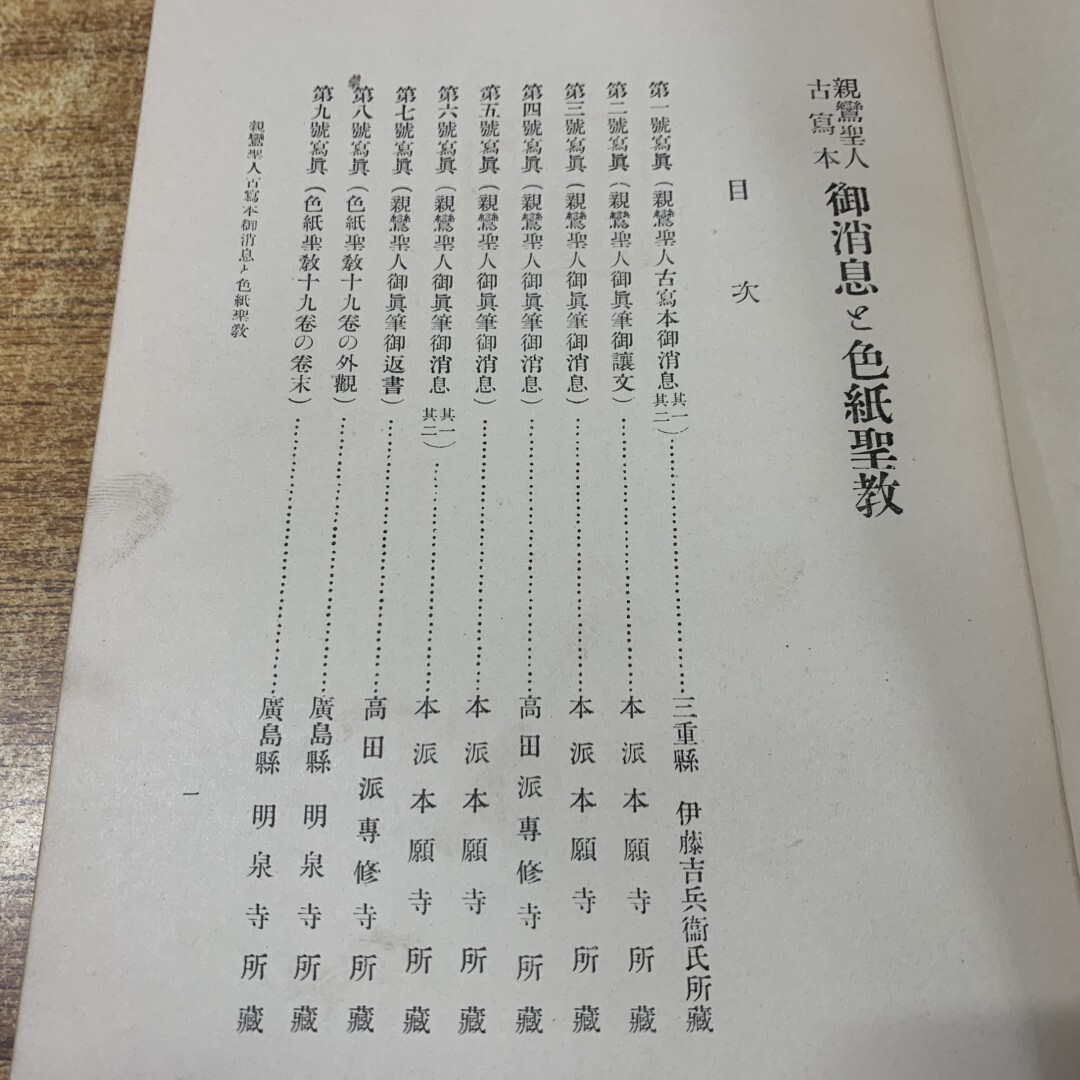 親鸞聖人
古寫本
御消息と色紙聖教
目次
第一號寫眞(親鸞聖人古寫本御消息其一其二)……三重縣 伊藤吉兵衞氏所藏
第二號寫眞(親鸞聖人御眞筆御讓文)……本派本願寺所藏
第三號寫眞(親鸞聖人御眞筆御消息)……本派本願寺所藏
第四號寫眞(親鸞聖人御眞筆御消息)……高田派專修寺所藏
第五號寫眞(親鸞聖人御眞筆御消息)……本派本願寺所藏
第六號寫眞(親鸞聖人御眞筆御消息其一其二)……本派本願寺所藏
第七號寫眞(親鸞聖人御眞筆御返書)……高田派專修寺所藏
第八號寫眞(色紙聖敎十九卷の外觀)……廣島縣 明泉寺所藏
第九號寫眞(色紙聖敎十九卷の卷末)……廣島縣 明泉寺所藏
親鸞聖人古寫本御消息と色紙聖敎
一